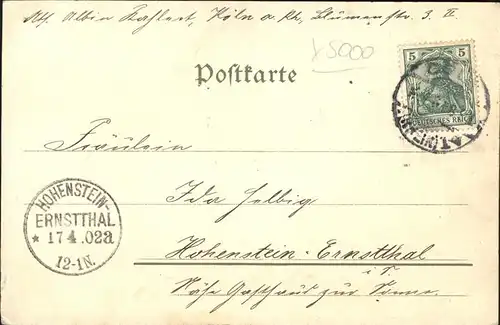 Abs. Albin Kahlert, Köln a. Rh., Blumenstr. 3. II.
x5000
Postkarte
5 5
DEUTSCHES REICH
Fräulein
Ida Helbig
HOHENSTEIN-
ERNSTTHAL
* 17 4.02a
12-1N.
Hohenstein-Ernstthal
Nähe Gasthaus zur